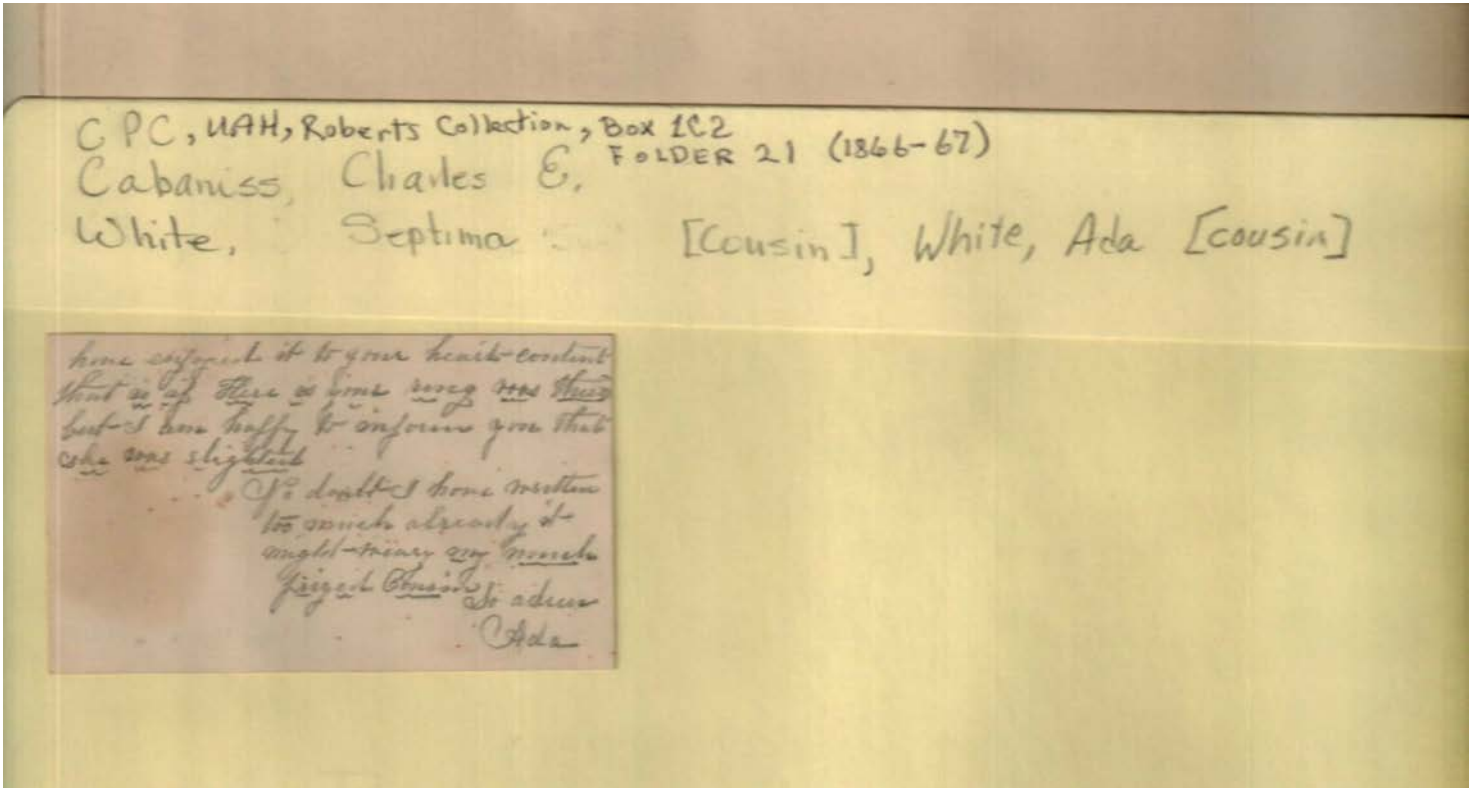 C P C, UAH, Roberts Collection, Box 1C2
FOLDER 21 (1866-67)
Cabaniss, Charles E.
White, Septima [Cousin], White, Ada [cousin]
have enjoyed it to your heart content
that is if Here is your was there
but I am happy to inform you that
she was slighted
No doubt I have written
too much already it
might my much
prized Cousin
So adieu
Ada